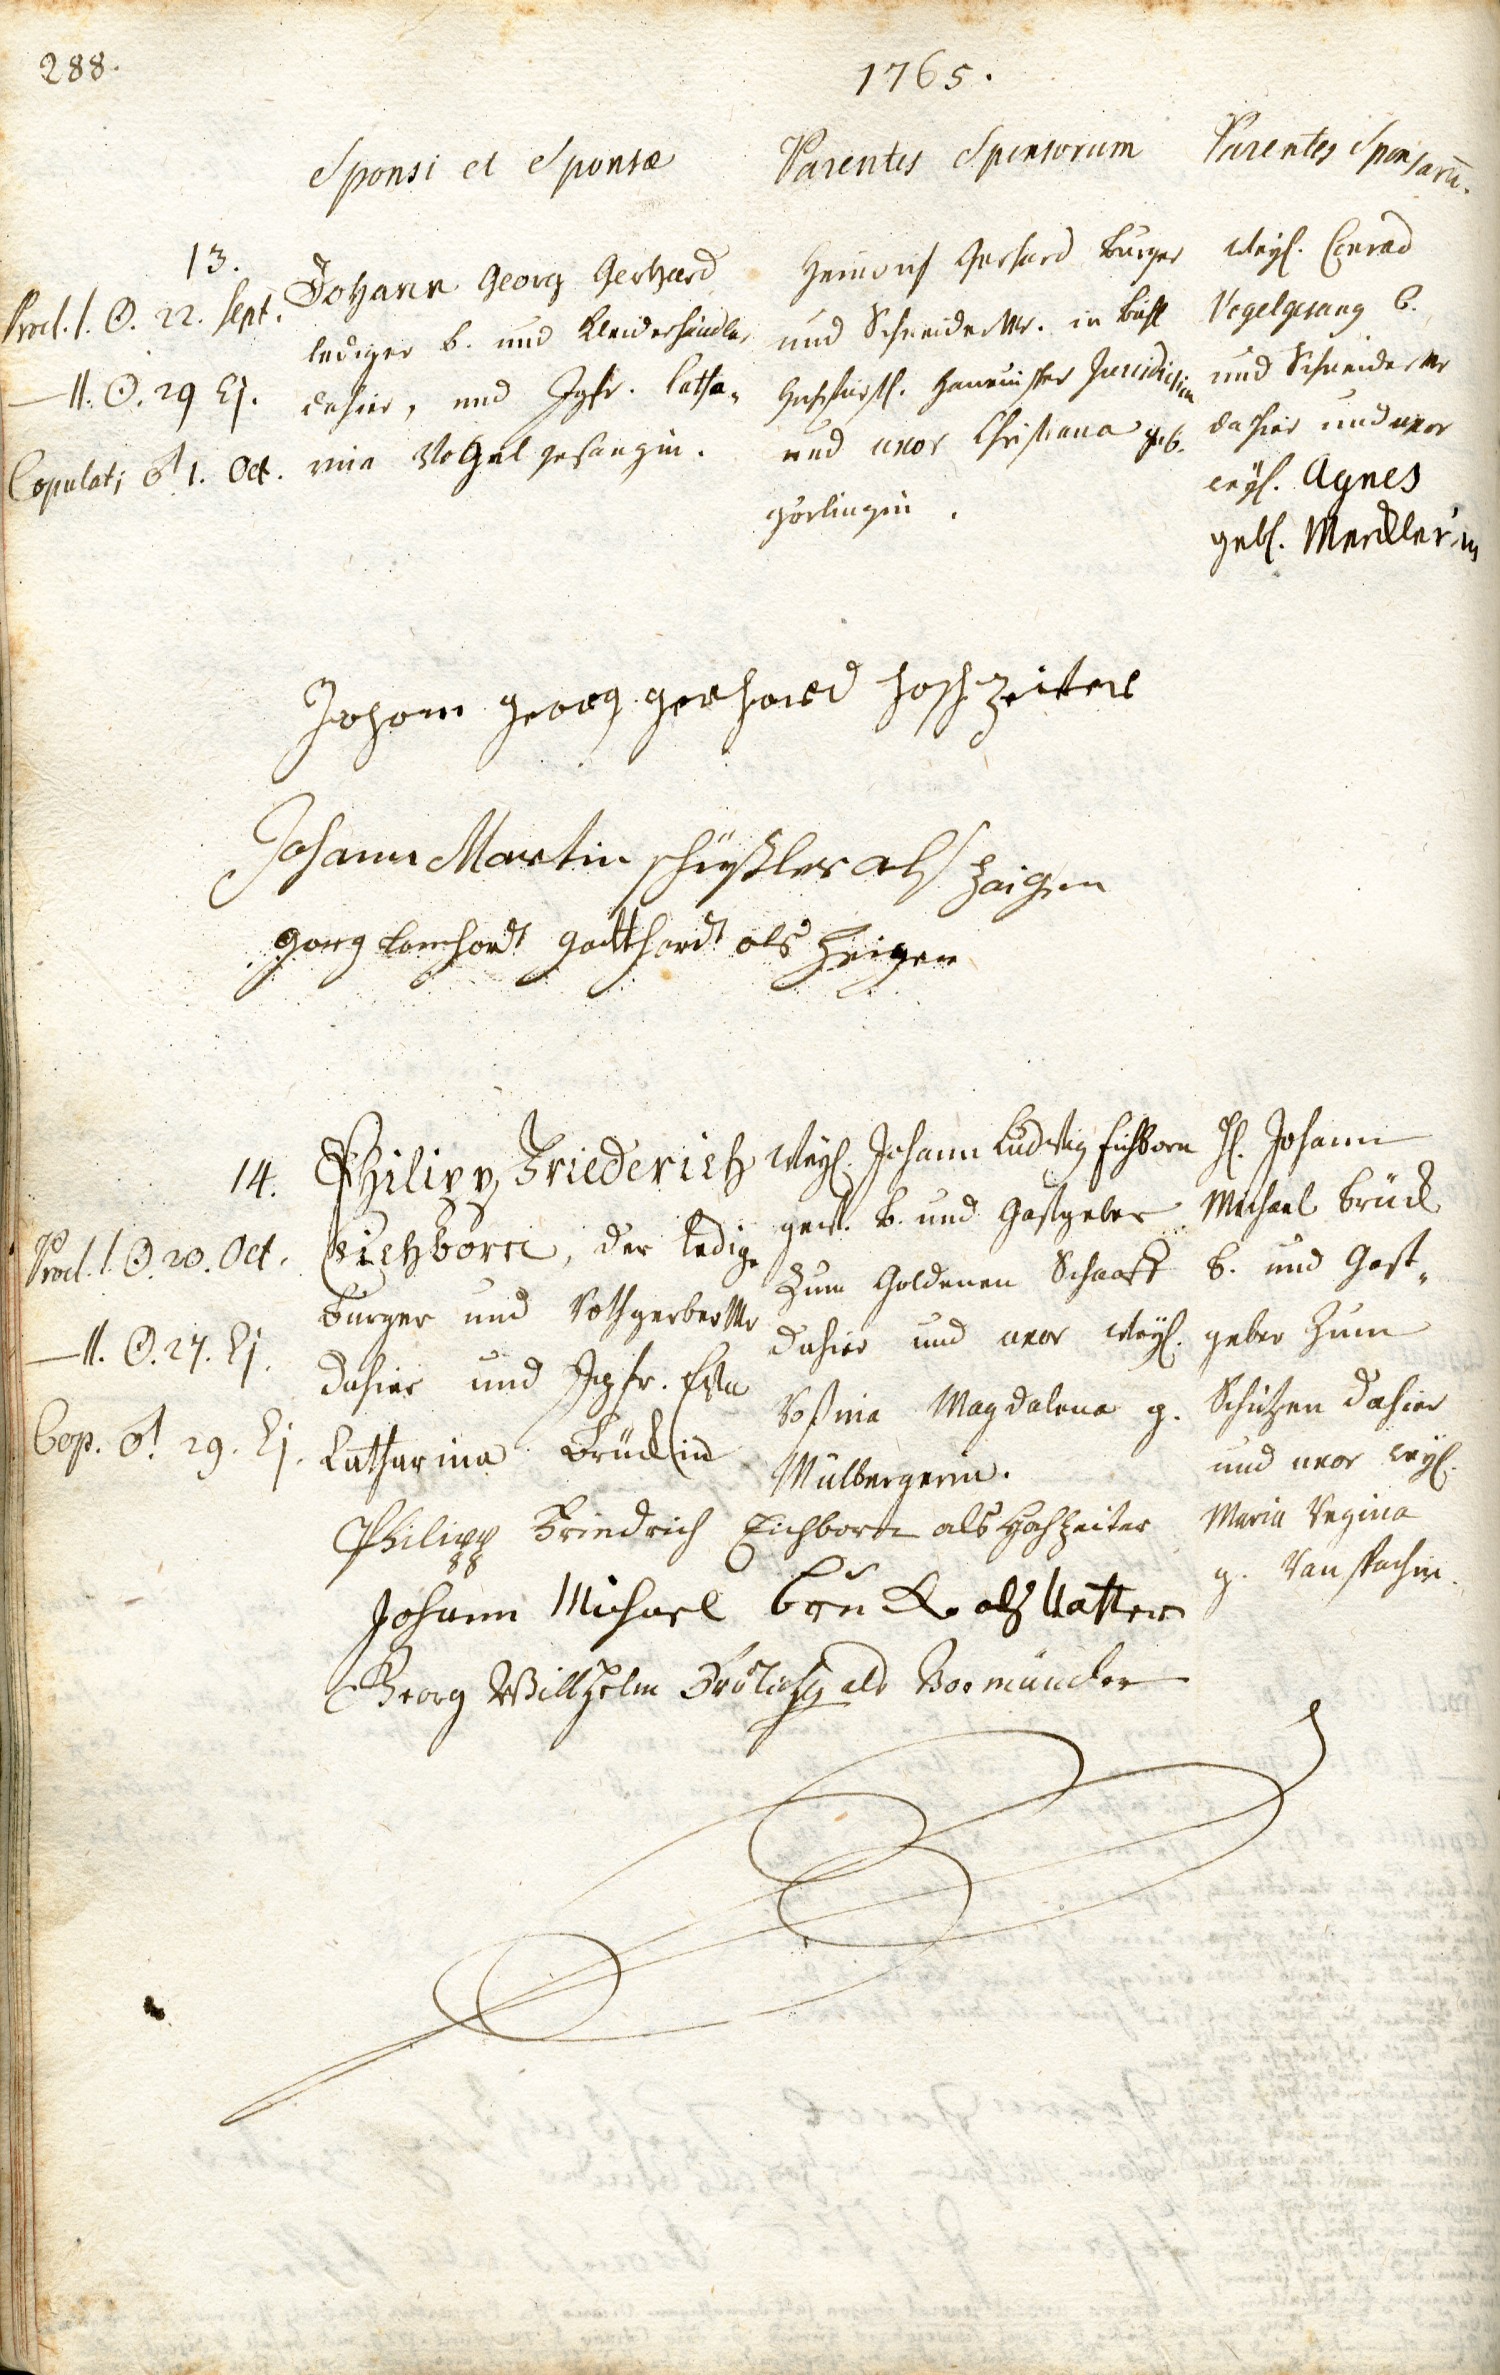 288.
1765.
Sponsi et Sponsæ
Parentes Sponsorum
Parentes Sponsarū.
13.
Procl. I. ☉. 22. Sept.
— II. ☉. 29 Ej.
Copulati ♂ 1. Oct.
Johann Georg Gerhard
lediger b. und Kleiderhändler
dahier, und Jgfr. Catha„
rina Vogelgesangin.
Heinrich Gerhard burger
und Schneider Mr. in
Jurisdiction
und uxor Christiana geb.
Görlingin.
Weyl. Conrad
Vogelgesang b.
und Schneider Mr
dahier und uxor
weyl. Agnes
gebl. Mercklerin
Johann georg gerhard hochzeiter
Johann Martin als zeigen
georg gotthardt als Zeigen
14.
Procl. I. ☉. 20. Oct.
— II. ☉. 27. Ej.
Cop. ♂ 29. Ej.
Philipp Friederich
Eichborn, der ledige
burger und Rothgerber Mr
dahier und Jgfr. Eva
Catharina Brückin
Weyl. Johann Ludwig Eichborn
gew. b. und Gastgeber
zum Goldenen Schaaff
dahier und uxor weyl.
Rosina Magdalena g.
Mülbergerin.
H. Johann
Michael Brück
b. und Gast„
geber zum
Schützen dahier
und uxor weyl.
Maria Regina
g.
Philipp Friedrich Eichborn als Hochzeiter
Johann Michael brück als Vatter
Georg Willhelm Frölich als Vormünder